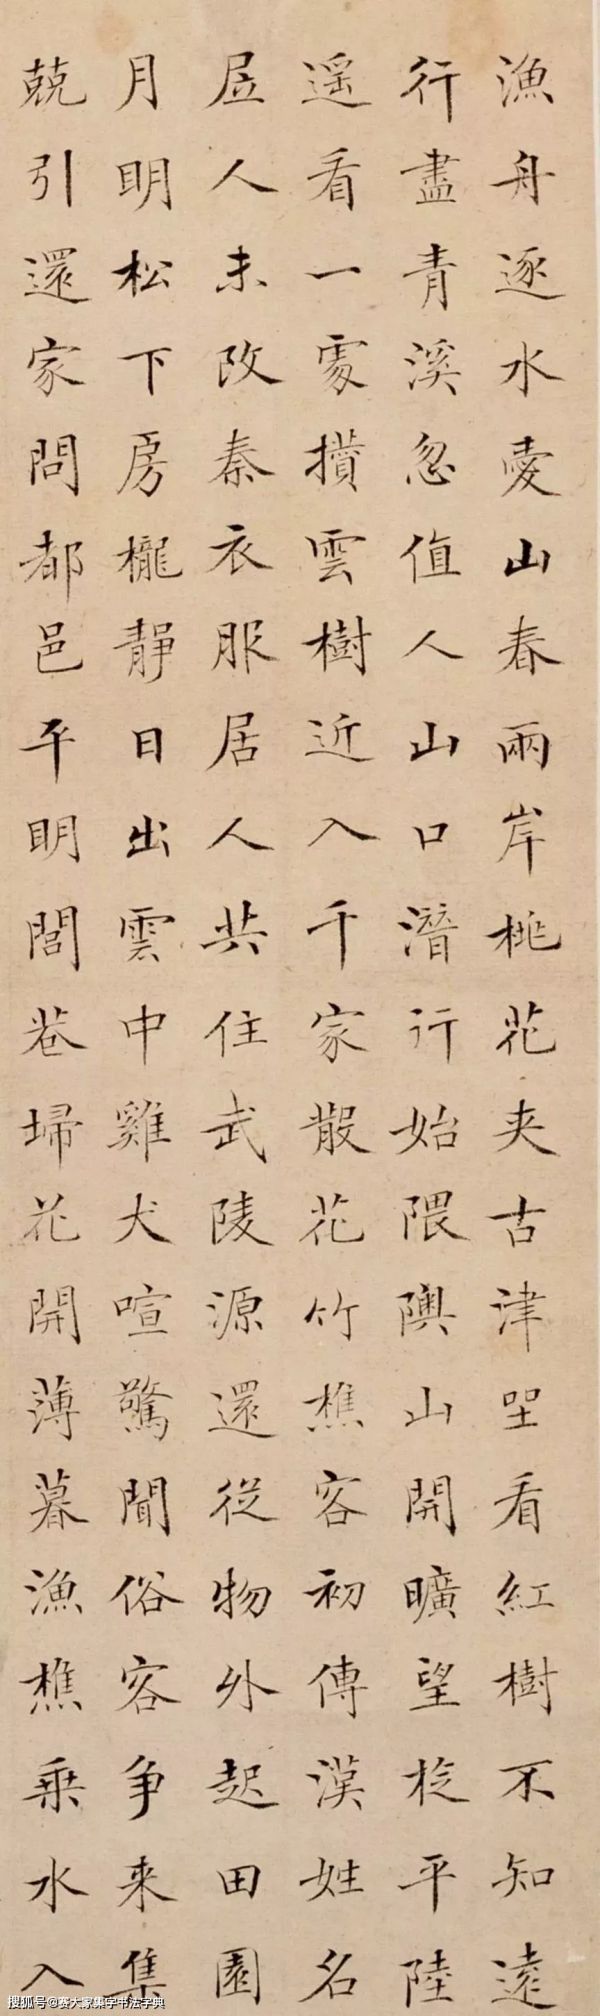 漁舟逐水愛山春兩岸桃花夾古津坐看紅樹不知遠
行盡青溪忽值人山口潛行始隈隩山開曠望旋平陸
遥看一處攢雲樹近入千家散花竹樵客初傳漢姓名
居人未改秦衣服居人共住武陵源還從物外起田園
月明松下房櫳靜日出雲中雞犬喧驚聞俗客争来集
兢引還家問都邑平明閭巷埽花開薄暮漁樵乗水入
搜狐号@赛大家集字书法字典